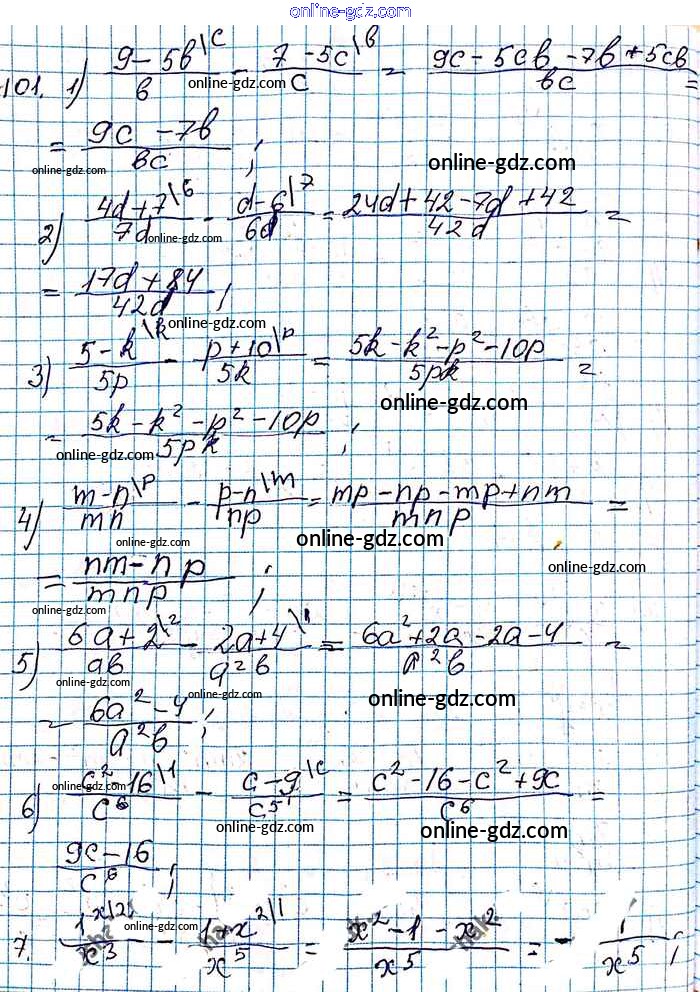 online-gdz.com
101. 1) (9 - 5в\c)/в - (7 - 5c\в)/c = (9c - 5cв - 7в + 5cв)/вc =
online-gdz.com
= (9c - 7в)/вc ;
online-gdz.com online-gdz.com
2) (4d + 7\6)/7d - (d - 6\7)/6d = (24d + 42 - 7d + 42)/42d =
online-gdz.com
= (17d + 84)/42d ;
online-gdz.com
3) (5 - k\k)/5p - (p + 10\p)/5k = (5k - k² - p² - 10p)/5pk =
online-gdz.com
= (5k - k² - p² - 10p)/5pk ;
online-gdz.com
4) (m - n\p)/mn - (p - n\m)/np = (mp - np - mp + nm)/mnp =
online-gdz.com online-gdz.com
= (nm - np)/mnp ;
online-gdz.com
5) (6a + 2\2)/aв - (2a + 4\1)/a²в = (6a² + 2a - 2a - 4)/a²в =
online-gdz.com online-gdz.com online-gdz.com
= (6a² - 4)/a²в ;
6) (c² - 16\1)/c⁶ - (c - 9\c)/c⁵ = (c² - 16 - c² + 9c)/c⁶ =
online-gdz.com online-gdz.com online-gdz.com
(9c - 16)/c⁶ ;
7. /x³ - (1 + x²\1)/x⁵ = (x² - 1 - x²)/x⁵ = - 1/x⁵ ;
online-gdz.com